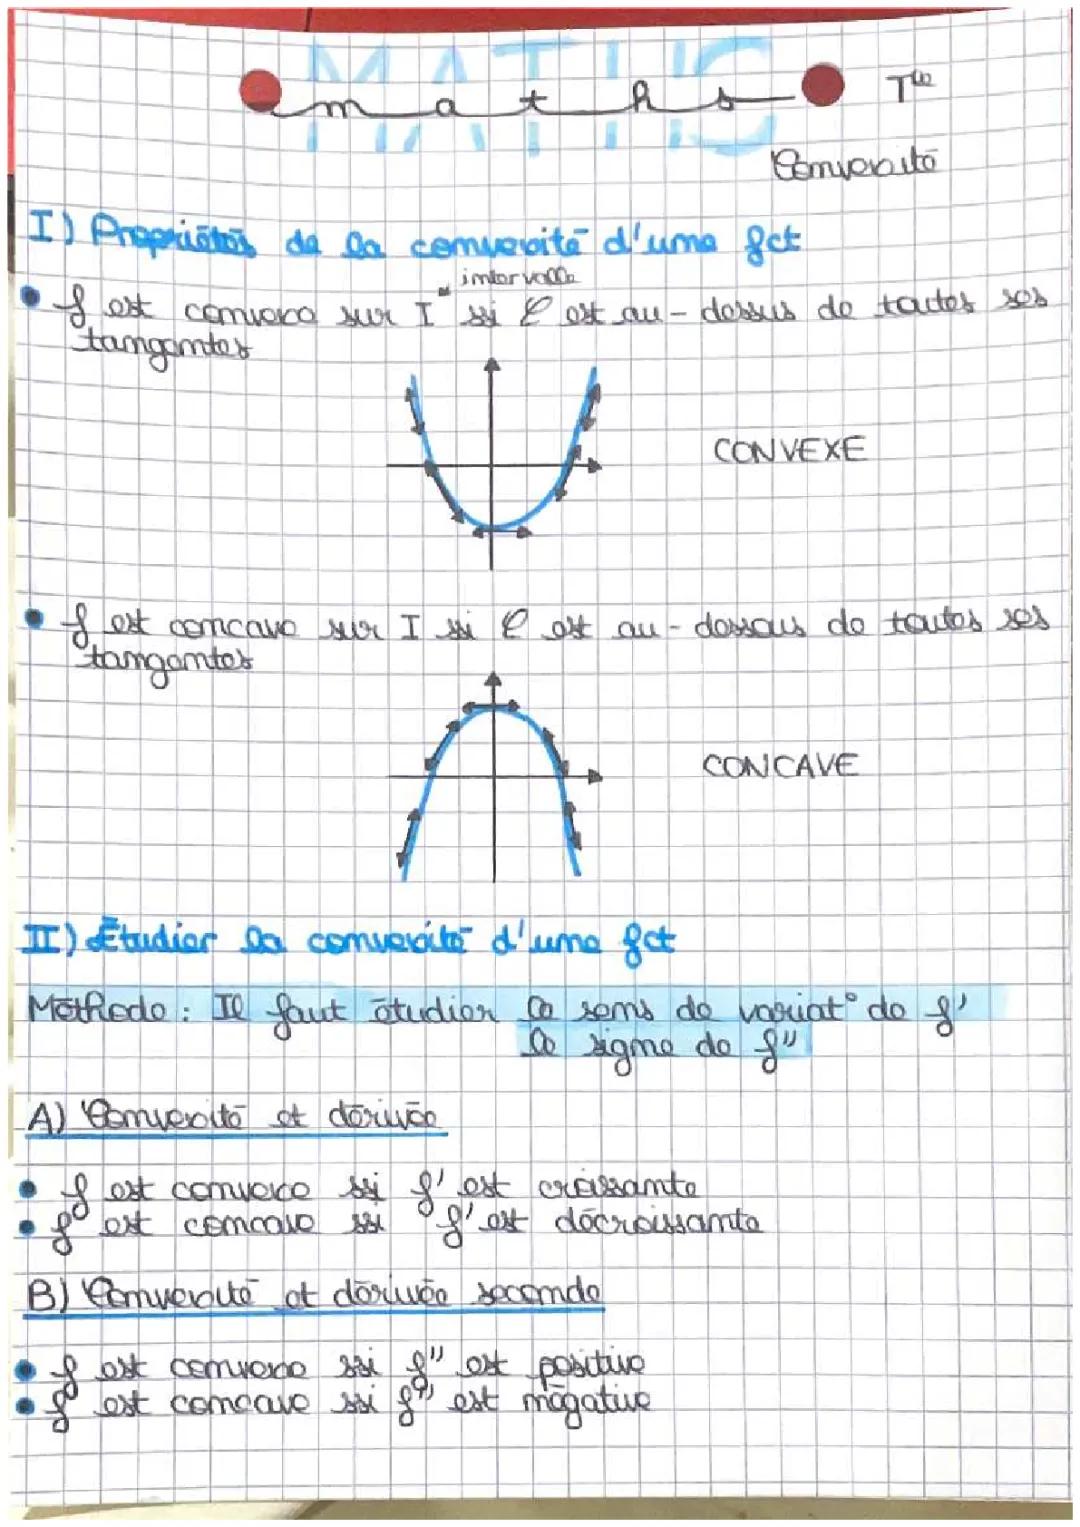 MATHS
maths
Tle
Convexité
I) Propriétés de la convexité d'une fct
intervalle
• f est convexe sur I ssi C est au-dessus de toutes ses
tangentes
CONVEXE
• f est concave sur I ssi C est au-dessous de toutes ses
tangentes
CONCAVE
II) Étudier la convexité d'une fct
Méthode : Il faut étudier le sens de variat° de f'
le signe de f"
A) Convexité et dérivée
• f est convexe ssi f' est croissante
• f est concave ssi f' est décroissante
B) Convexité et dérivée seconde
• f est convexe ssi f" est positive
• f est concave ssi f" est négative